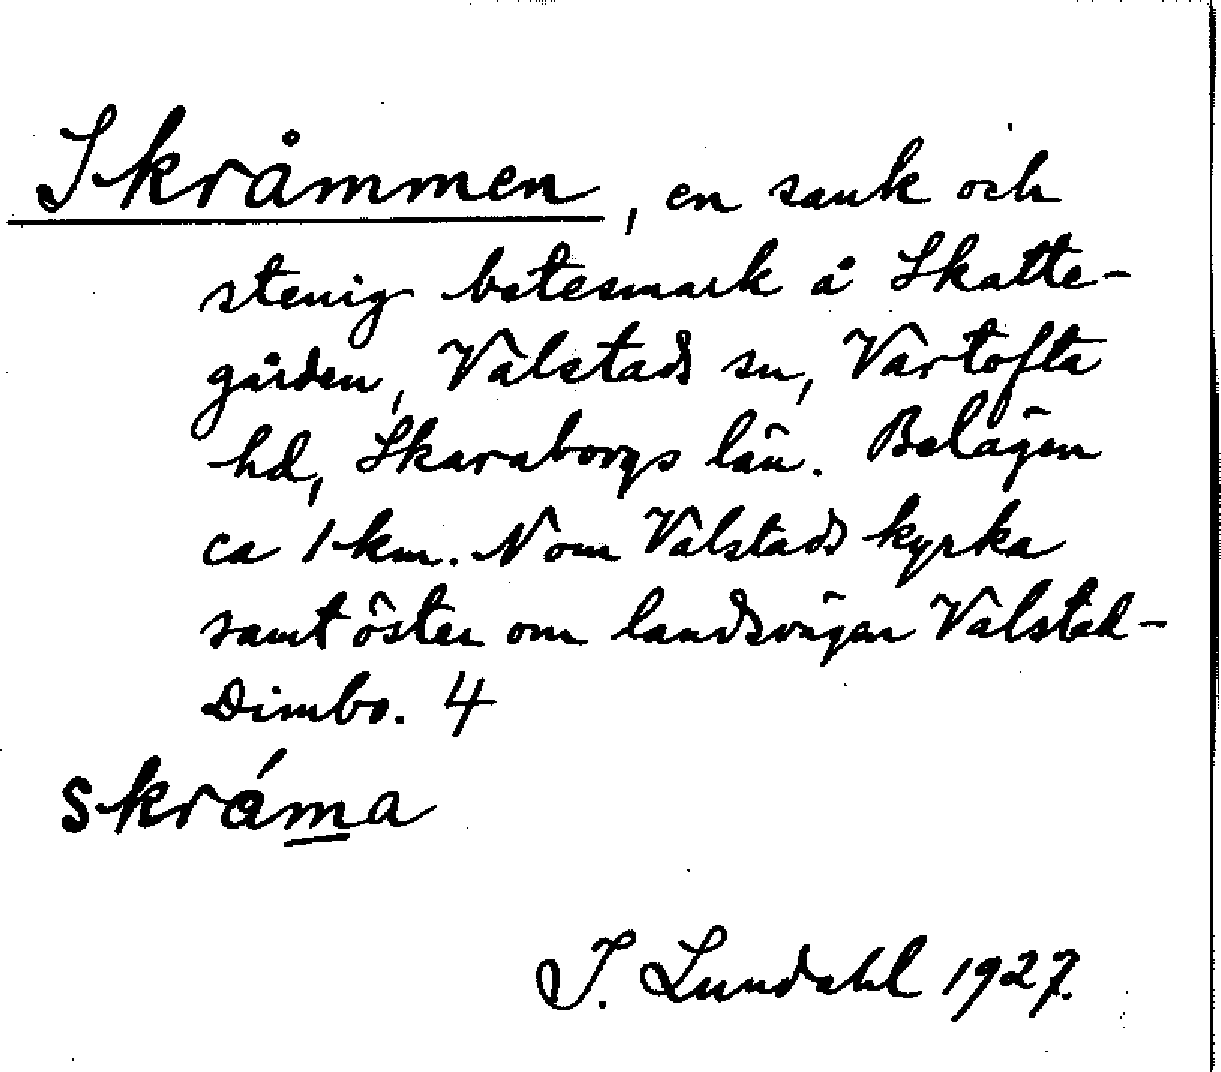 Skråmmen, en sank och
stenig betesmark å Skatte-
gården, Valstads sn, Vartofta
hd, Skaraborgs län. Belägen
ca 1 km. N om Valstads kyrka
samt öster om landsvägen Valstad-
Dimbo. 4
skráma
I. Lundahl 1927.